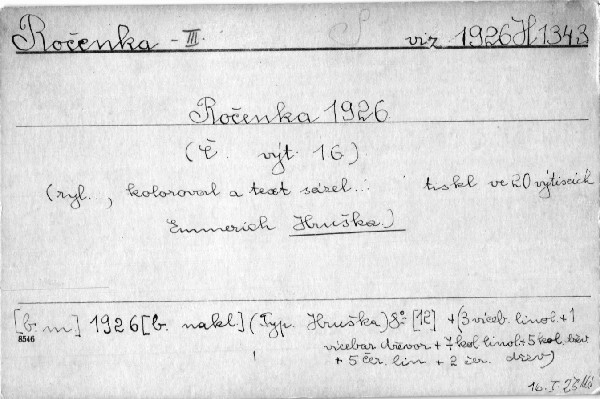 Ročenka - III. viz 1926 H 1343
Ročenka 1926
(Č. výt. 16)
(ryl., koloroval a text sázel... tiskl ve 20 výtiscích
Emmerich Hruška.)
[b. m] 1926 [b. nakl.] (Typ. Hruška) 8° [12] + (3 víceb. linol. + 1
8546
vícebar dřevor + 7 kol linol + 5 kol. dřev
+ 5 čer. lin + 2 čer. dřev)
16. I. 27